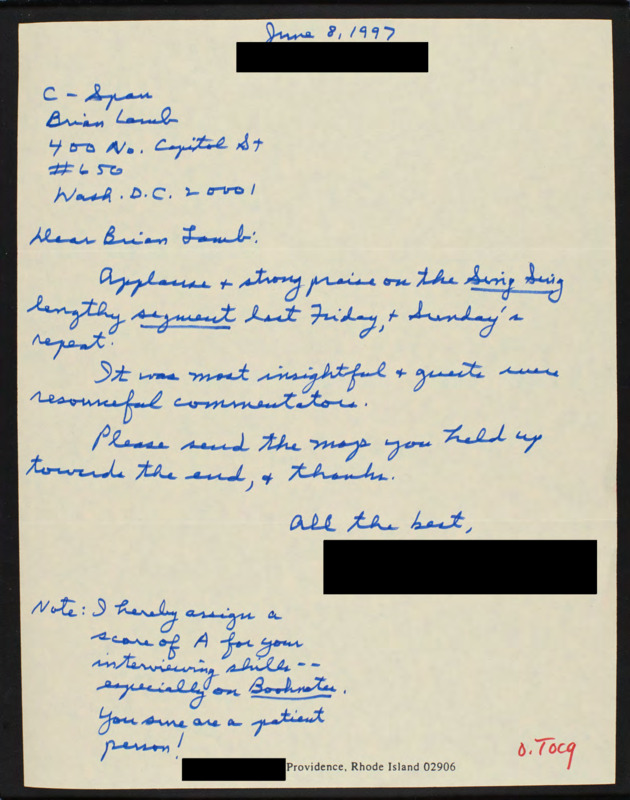 June 8, 1997
C - Span
Brian Lamb
400 No. Capitol St
#650
Wash. D.C. 20001
Dear Brian Lamb:
Applause + strong praise on the Sing Sing
lengthy segment last Friday, + Sunday's
repeat.
It was most insightful + guests were
resourceful commentators.
Please send the map you held up
towards the end, & thanks.
All the best,
Note: I hereby assign a
score of A for your
interviewing skills --
especially on Booknotes.
You sure are a patient
person!
D. Tocq
Providence, Rhode Island 02906